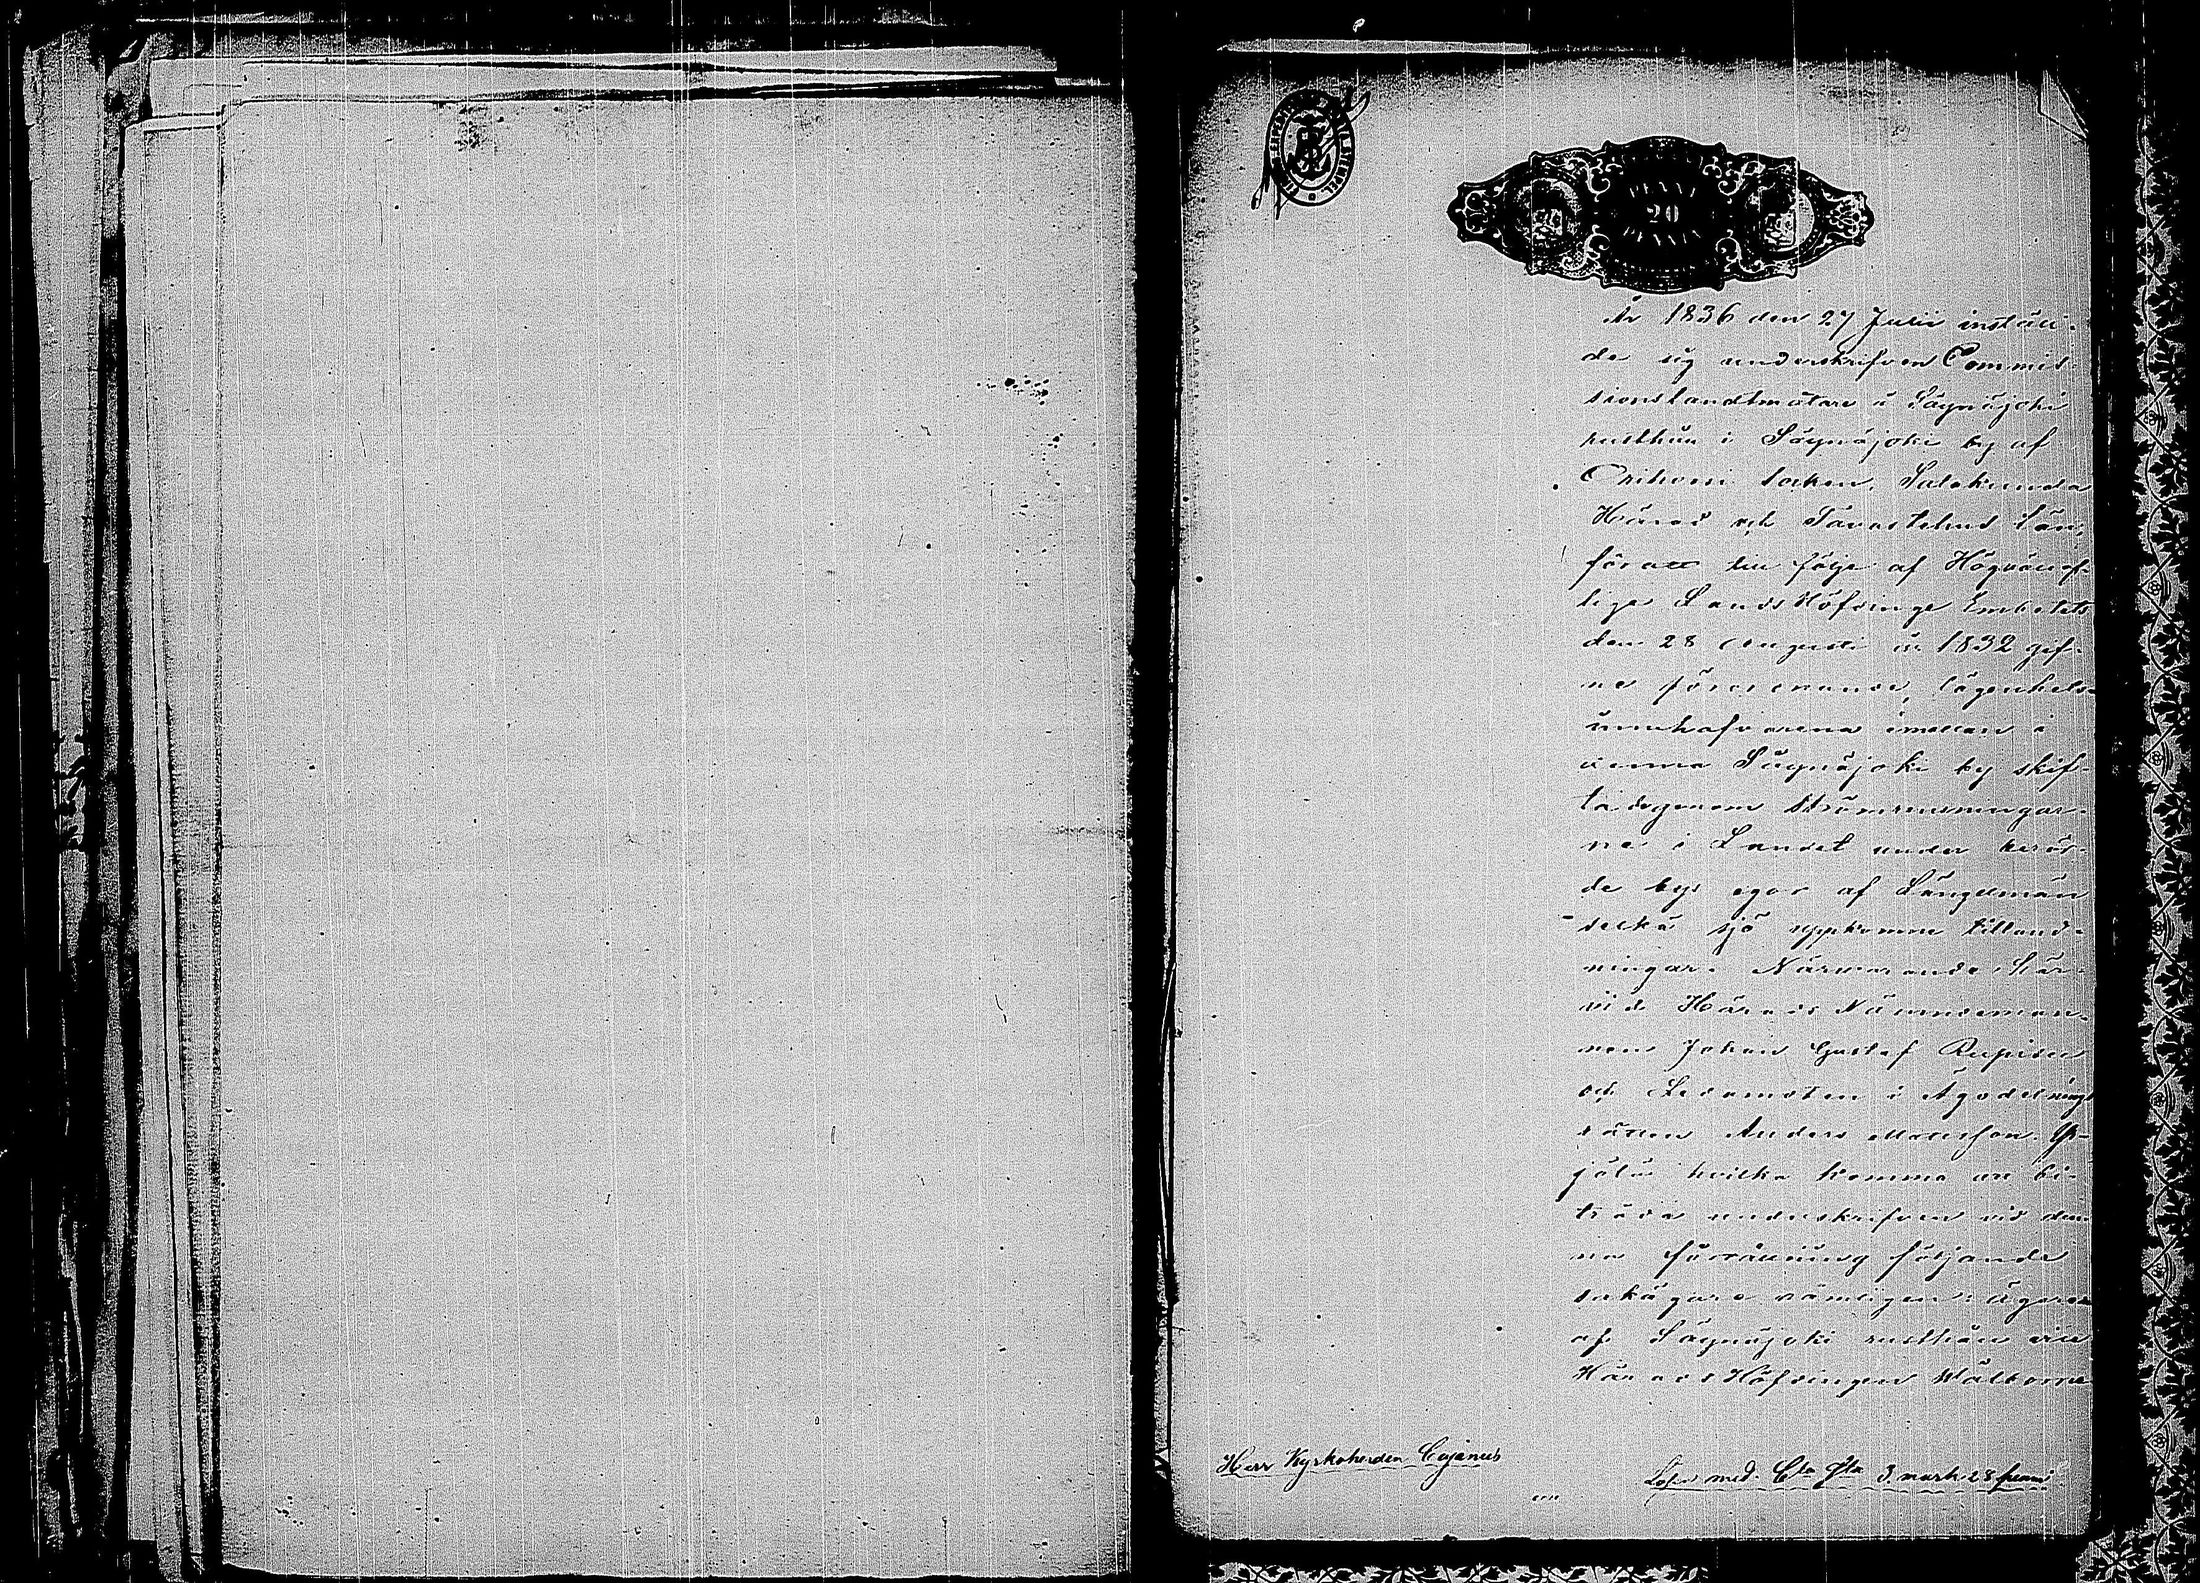 PENNI
20
PENNIÄ
År 1836 den 27 Julii instäl-
de sig underskrifven Commis-
sionslandtmätare å Sägnäjoki
rusthåll i Sägnäjoki by af
Orihvesi socken, Satakunda
Härad och Tavastehus län,
för att till följe af Högvälof-
lige Landshöfdinge Embetets
den 28 Augusti år 1832 gif-
ne förordnande, lägenhets-
innehafvarena imellan i
denna Sägnäjoki by skif-
ta de genom strömrensningar-
ne i Landet under berör-
de bys egor af Längelmän
vesi sjö uppkomne tilland-
ningar. Närvarande här-
vid Härads Nämndeman-
nen Johan Gustaf
och Ledamoten i Ägodelnings
rätten Anders Mattsson
jälä hvilka komma att bi-
träda underskrifven vid den-
na förrättning följande
sakägare nämligen: ägaren
af Sägnäjoki rusthåll
Härads Höfdingen Wälborne
Herr Kyrkoherden Cajanus
Lösen med Cta Sta 3 mark 28 penni